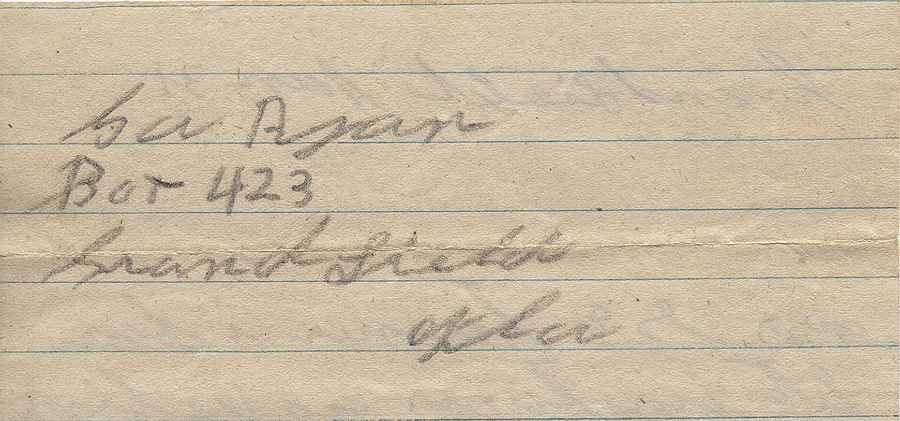 Ryan
Box 423
Grandfield
Okla